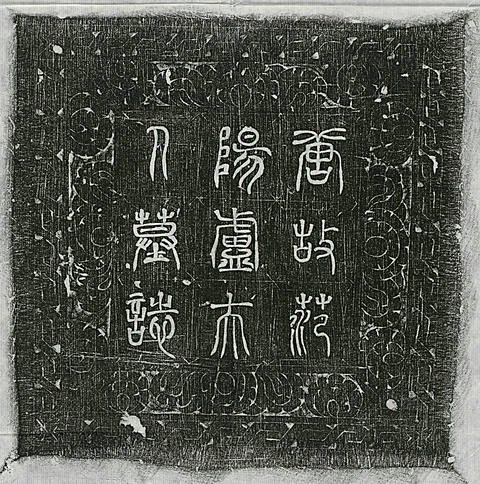 唐故范
陽盧夫
人墓誌